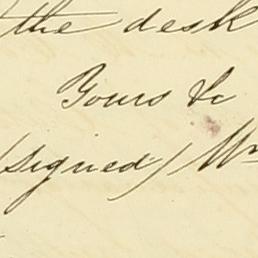 the desk
Yours &c
(Signed) Wm